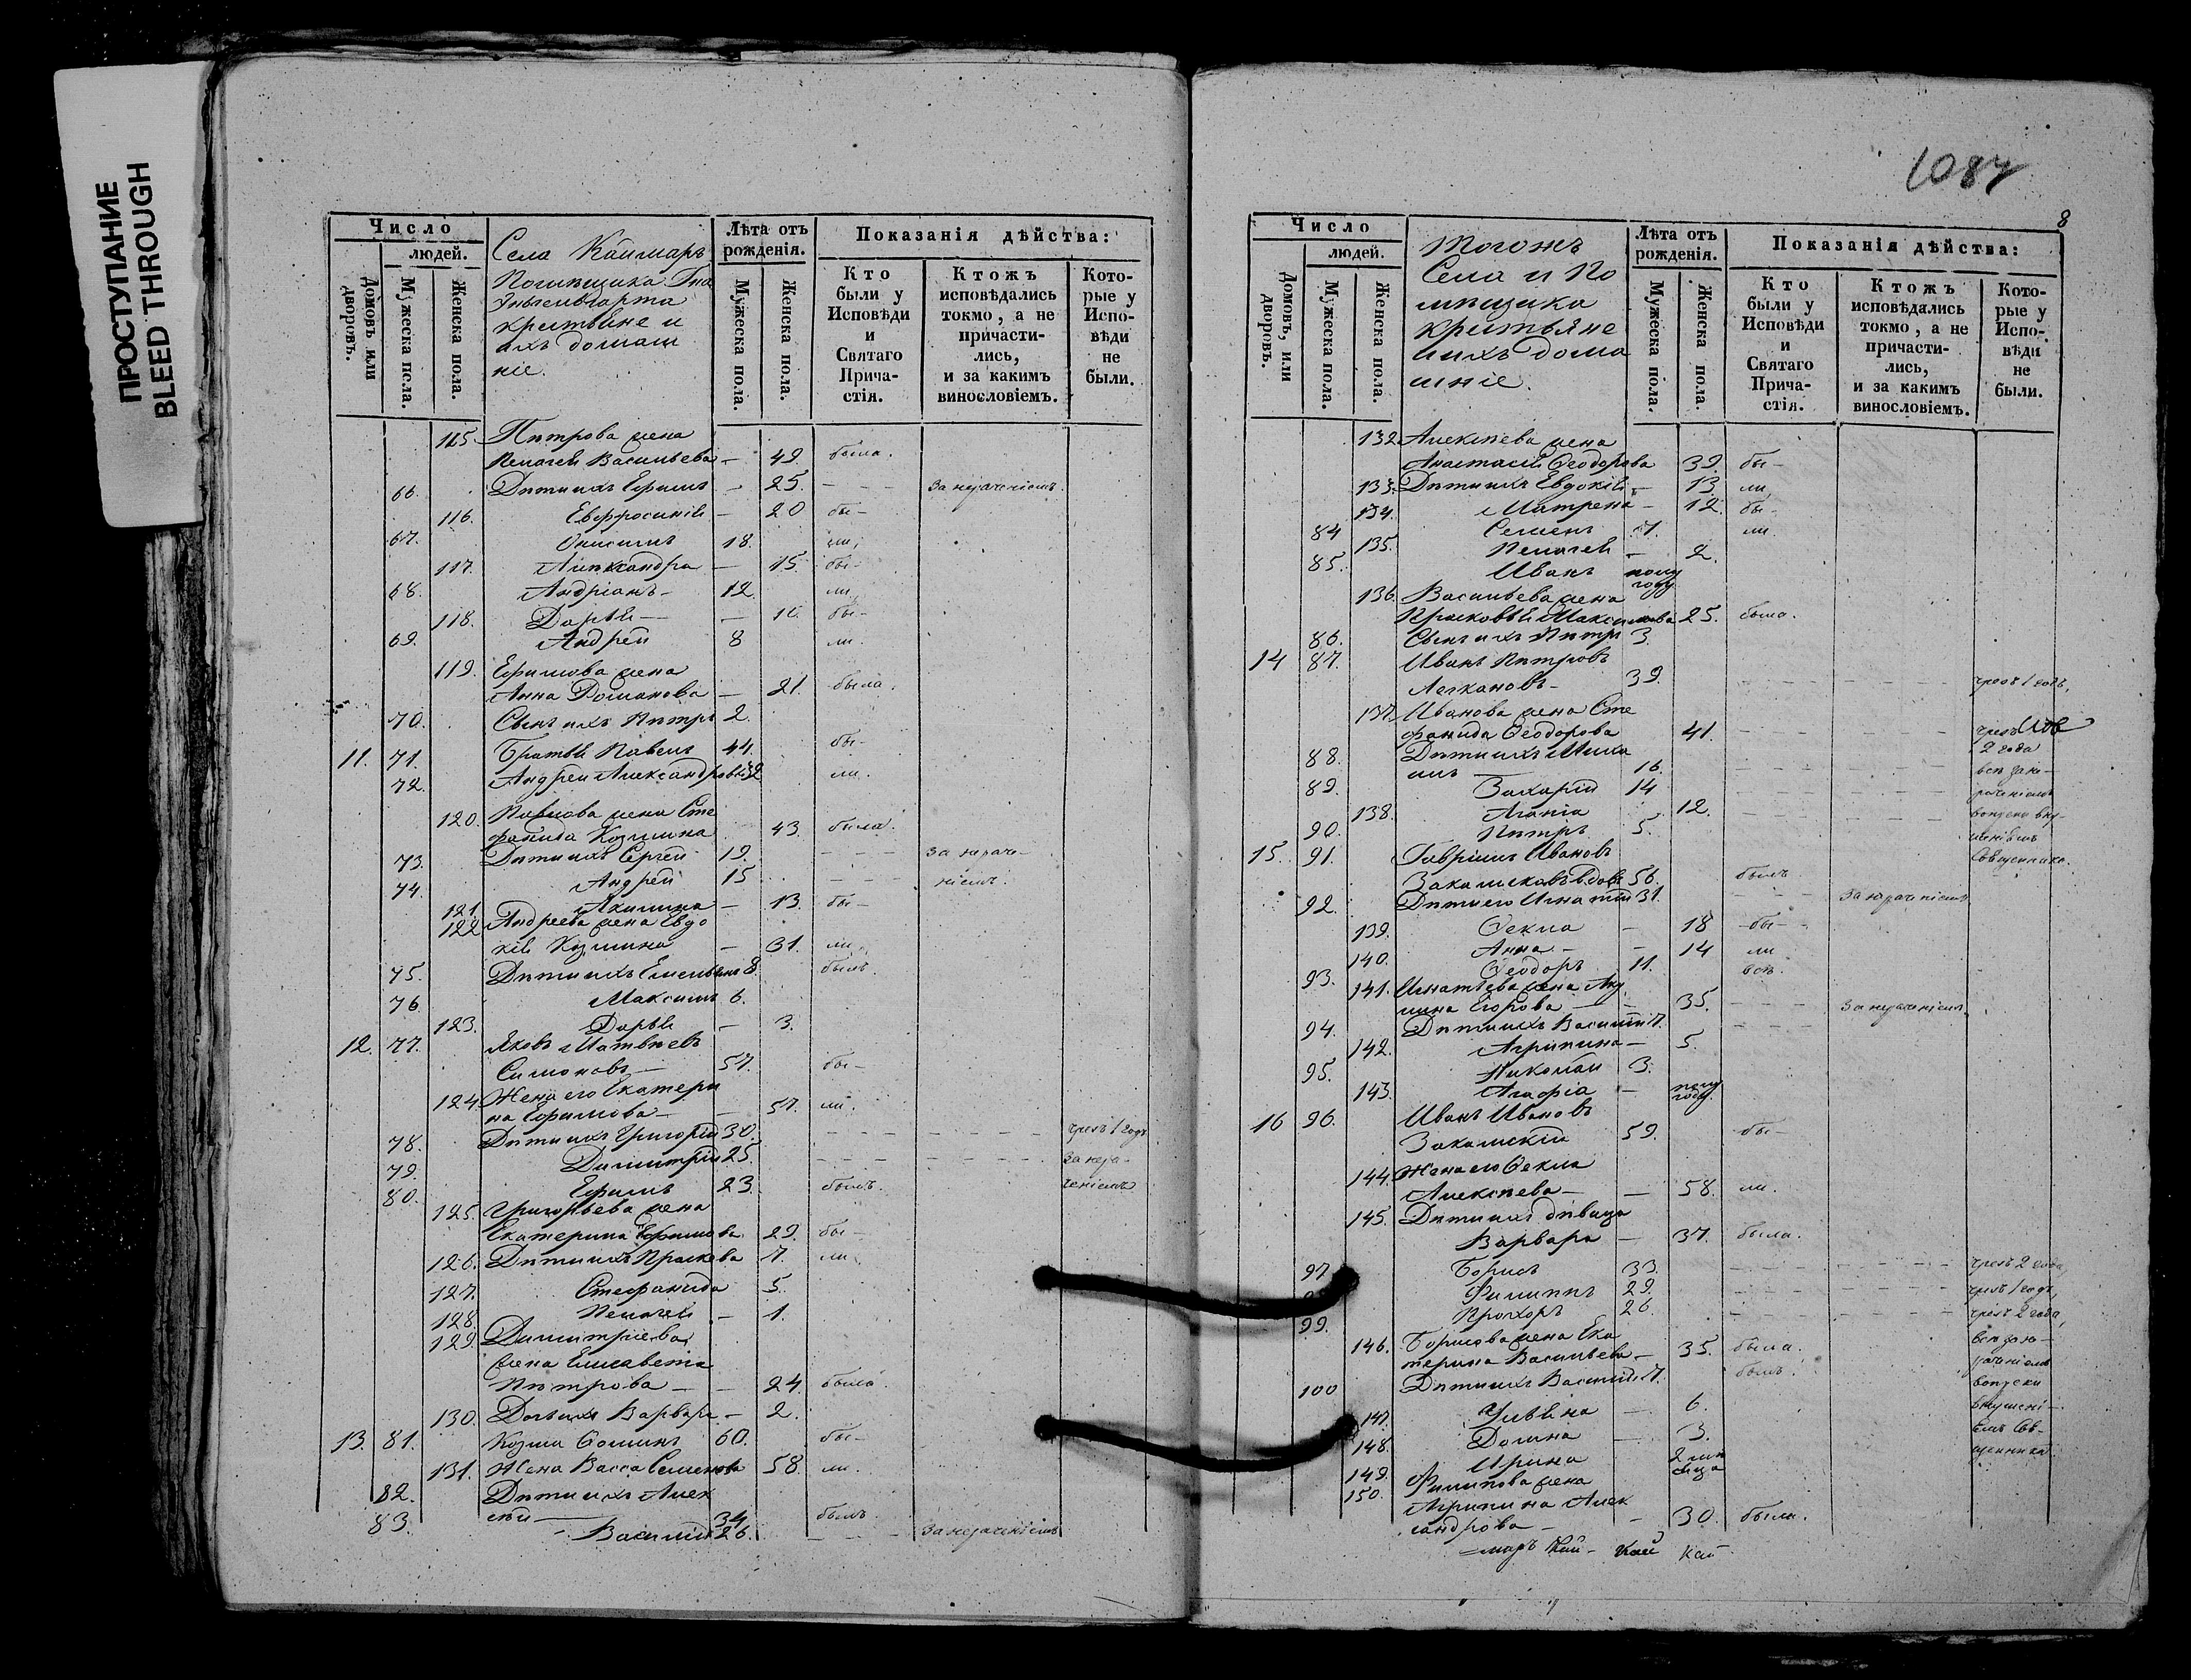 ПРОСТУПАНИЕ
BLEED THROUGH
Число
людей.
Домовъ или дворовъ.
Мужеска пола.
Женска пола.
Села Каймаръ
Помѣщика
крестьяне и
ихъ домаш
ніе.
Лѣта отъ рожденія.
Мужеска пола.
Женска пола.
Показанія дѣйства:
Кто были у Исповѣди и Святаго Причастія.
Ктожъ исповѣдались токмо, а не причастились, и за какимъ винословіемъ.
Которые у Исповѣди не были.
115. Петрова жена
Пелагея Васильева - 49. была.
66. Дѣти ихъ Ефимъ - 25. - за нераченіемъ.
116. Евфросинія - 20 бы-
67. Онисимъ 18. ли,
117. Александра - 15. бы-
68. Андріанъ - 12. ли,
118. Дарья - 10. бы-
69. Андрей 8 ли.
119. Ефимова жена
Анна Романова - 21. была.
70. Сынъ ихъ Петръ 2.
11. 71. Братья Павелъ 44. бы-
72. Андрей Александровы 32 ли.
120. Павлова жена Сте
фанида Козмина 43. была.
73. Дѣти ихъ Сергей 19. - за нераче-
74. Андрей 15 - ніемъ.
121. Акилина - 13. бы-
122 Андреева жена Евдо
кія Козмина - 31. ли,
75. Дѣти ихъ Емельянъ 8. былъ.
76. Максимъ 6.
123. Дарья - 3.
12. 77. Яковъ Матвѣевъ
Симоновъ - 57. бы-
124. Жена его Екатери
на Ефимова - 57. ли.
78. Дѣти ихъ Григорій 30. - чрезъ 1 годъ
79. Димитрій 25. - за нера-
80. Ефимъ 23. былъ. ченіемъ
125. Григорьева жена
Екатерина Ефимова 29. бы-
126. Дѣти ихъ Праскева 7. ли
127. Стефанида 5.
128. Пелагея - 1.
129. Димитріева
жена Елисавета
Петрова - 24. была.
130. Дочь ихъ Варвара - 2.
13. 81. Козма Ѳоминъ 60. бы-
131. Жена Васса Семенова 58. ли.
82. Дѣти ихъ Алек
сѣй 34 былъ.
83. Василій 26. - за нераченіемъ
1087
8
Число
людей.
Домовъ, или дворовъ.
Мужеска пола.
Женска пола.
Тогожъ
Села и По
мѣщика
крестьяне
и ихъ дома
шніе.
Лѣта отъ рожденія.
Мужеска пола.
Женска пола.
Показанія дѣйства:
Кто были у Исповѣди и Святаго Причастія.
Ктожъ исповѣдались токмо, а не причастились, и за какимъ винословіемъ.
Которые у Исповѣди не были.
132 Алексѣева жена
Анастасія Ѳеодорова 39. бы-
133. Дѣти ихъ Евдокія - 13. ли,
134. Матрена - 12. бы-
84 Семенъ 7. ли.
135. Пелагея - 2.
85. Иванъ полу году
136. Васильева жена
Прасковья Максимова 25. была.
86. Сынъ ихъ Петръ 3.
14 87. Иванъ Петровъ
Легкановъ - 39. - чрезъ 1 годъ,
137. Иванова жена Сте
фанида Ѳеодорова 41. - чрезъ
2 года
88. Дѣти ихъ Миха
илъ 16. - всѣ за не-
89. Захарій 14 - раченіемъ
138. Агапія 12. - вопреки вну-
90. Петръ 5. шеніямъ
15. 91. Гавріилъ Ивановъ Священника.
Закамсковъ вдовъ 56. былъ
92. Дѣти его Игнатій 31. - за нераченіемъ
139. Ѳекла - 18 бы-
140. Анна - 14 ли
93. Ѳеодоръ 11. всѣ.
141. Игнатьева жена Аку
лина Егорова - 35. - за нераченіемъ.
94. Дѣти ихъ Василій 7.
142. Агрипина - 5.
95. Николай 3.
143. Агафія - полу году
16 96. Иванъ Ивановъ
Закамскій 59. бы-
144. Жена его Ѳекла
Алексѣева - 58. ли.
145. Дѣти ихъ дѣвица
Варвара - 37. была.
97. Борисъ 33. - чрезъ 2 года,
Филиппъ 29. - чрезъ 1 годъ,
99. Прохоръ 26. - чрезъ 2 года,
146. Борисова жена Ека всѣ за не-
терина Васильева - 35. была. раченіемъ
100 Дѣти ихъ Василій 7. былъ. вопреки
147. Ульяна - 6. внушені-
148. Домна - 3. ямъ Свя-
149. Ирина - 2 мѣсяца щенника
150. Филипова жена
Агрипина Алек
сандрова - 30. была.
=маръ Кай- Кай Кай